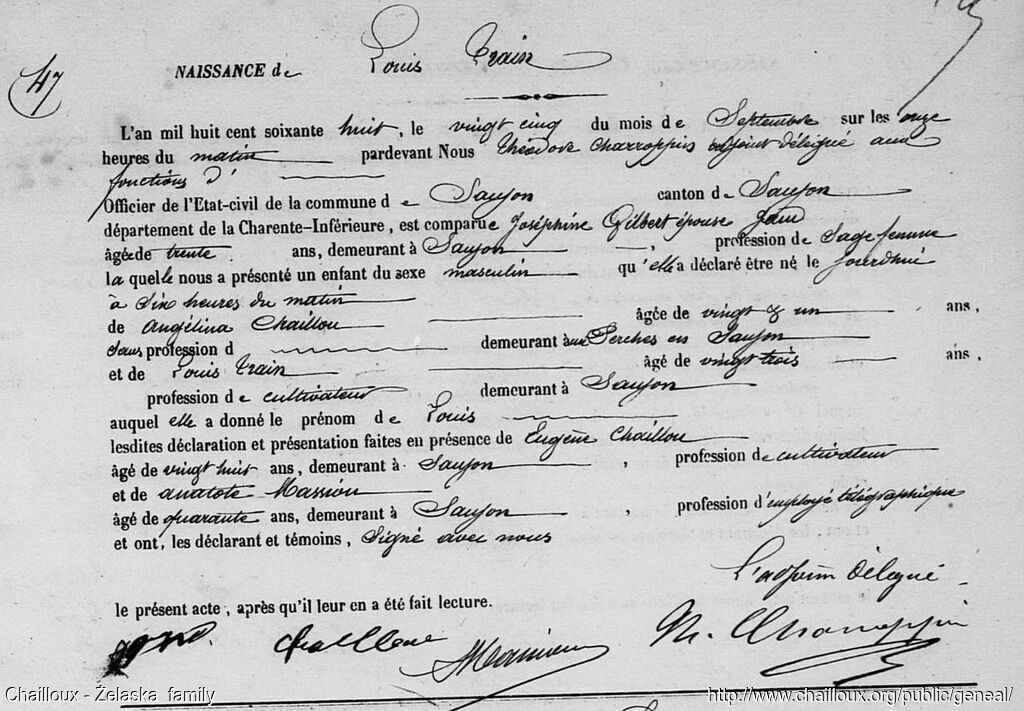 47
NAISSANCE de Louis Train
L'an mil huit cent soixante huit, le vingt cinq du mois de Septembre sur les onze
heures du matin pardevant Nous Théodore Charroppin adjoint délégué aux
fonctions d'
Officier de l'Etat-civil de la commune de Saujon canton de Saujon
département de la Charente-Inférieure, est comparue Joséphine Gilbert épouse
âgée de trente ans, demeurant à Saujon, profession de Sage femme
la quelle nous a présenté un enfant du sexe masculin qu'elle a déclaré être né le jourdhui
à Six heures du matin
de Angélina Chaillou âgée de vingt & un ans,
Sans profession d demeurant aux Perches en Saujon
et de Louis Train âgé de vingt trois ans,
profession de cultivateur demeurant à Saujon
auquel elle a donné le prénom de Louis
lesdites déclaration et présentation faites en présence de Eugène Chaillou
âgé de vingt huit ans, demeurant à Saujon, profession de cultivateur
et de anatole Massiou
âgé de quarante ans, demeurant à Saujon, profession d'employé télégraphique
et ont, les déclarant et témoins, Signé avec nous
L'adjoint Délégué
le présent acte, après qu'il leur en a été fait lecture.
Chailloux - Żelaska family
http://www.chailloux.org/public/geneal/